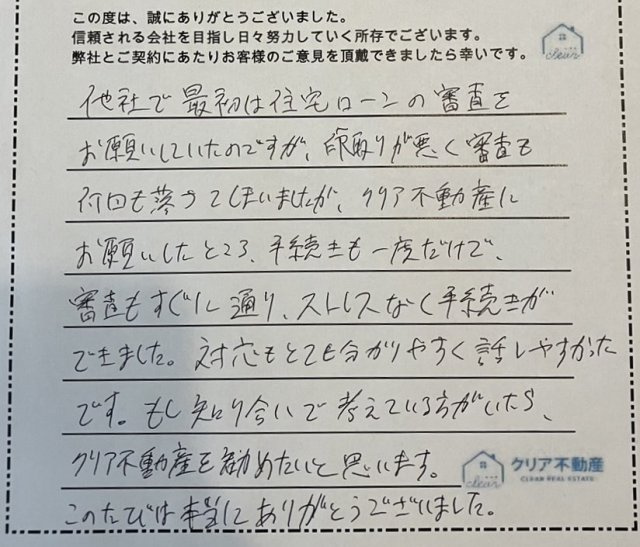 この度は、誠にありがとうございました。
信頼される会社を目指し日々努力していく所存でございます。
弊社とご契約にあたりお客様のご意見を頂戴できましたら幸いです。
clear
他社で最初は住宅ローンの審査を
お願いしていたのですが、段取りが悪く審査も
何回も落ちてしまいましたが、クリア不動産に
お願いしたところ、手続きも一度だけで、
審査もすぐに通り、ストレスなく手続きが
できました。対応もとても分かりやすく話しやすかった
です。もし知り合いで考えている方がいたら、
クリア不動産を勧めたいと思います。
clear クリア不動産
CLEAR REAL ESTATE
このたびは本当にありがとうございました。